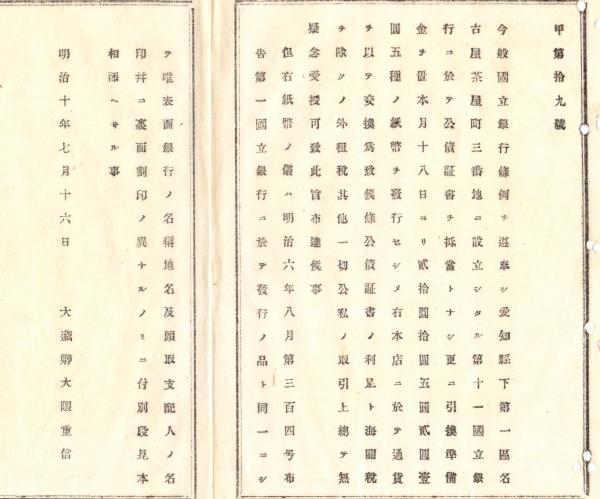 甲第拾九號
今般國立銀行條例ヲ遵奉シ愛知縣下第一區名
古屋茶屋町三番地ニ設立シタル第十一國立銀
行ニ於テ公債証書ヲ抵當トナシ更ニ引換準備
金ヲ置本月十八日ヨリ貳拾圓拾圓五圓貳圓壹
圓五種ノ紙幣ヲ發行セシメ右本店ニ於テ通貨
ヲ以テ交換爲致候條公債証書ノ利足ト海關稅
ヲ除クノ外租稅其他一切公私ノ取引上總テ無
疑念受授可致此旨布達候事
但右紙幣ノ儀ハ明治六年八月第三百四号布
告第一國立銀行ニ於テ發行ノ品ト同一ニシ
テ唯表面銀行ノ名稱地名及頭取支配人ノ名
印幷ニ裏面割印ノ異ナルノミニ付別段見本
相添ヘサル事
明治十年七月十六日　大藏卿大隈重信